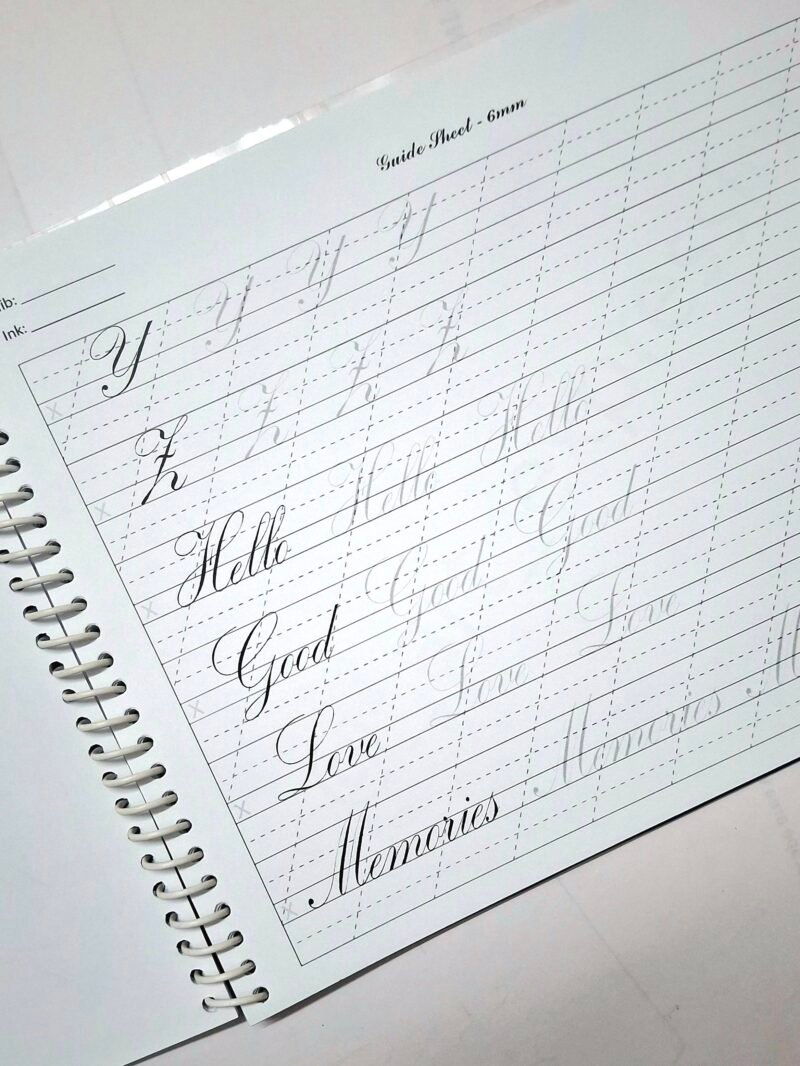 Guide Sheet - 6mm
ib:
Ink:
Y Y Y Y
X
Z Z Z Z
X
Hello Hello Hello
X
Good Good Good
X
Love Love Love
X
Memories Memories M
X